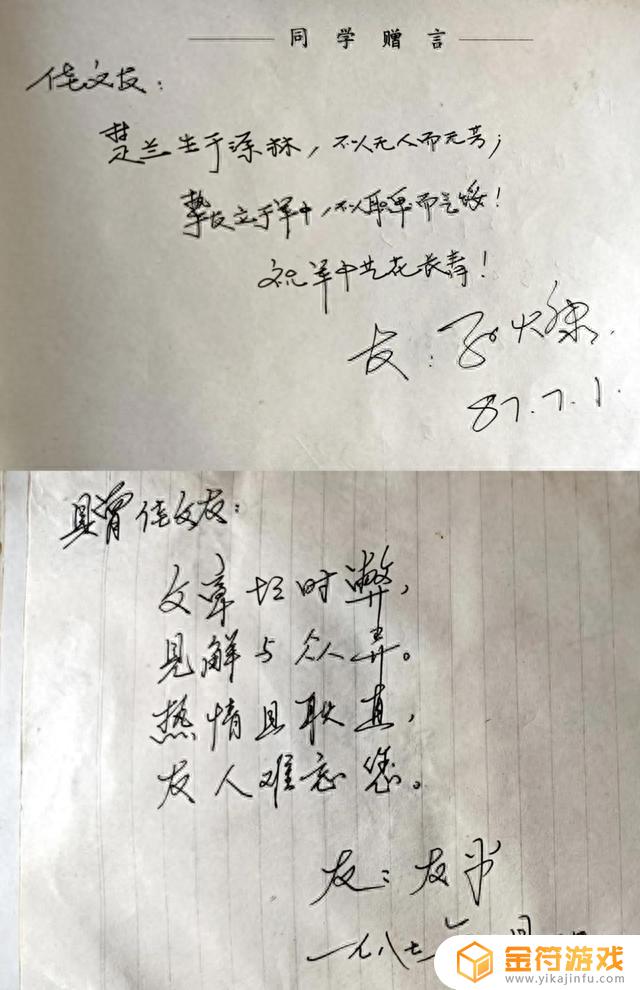 同学赠言
佳文友：
芝兰生于深林，不以无人而无芳；
挚友立于军中，不以职卑而气馁！
祝军中芝花长青！
友：孙火
87.7.1.
赠佳文友：
文章切时弊，
见解与众异。
热情且耿直，
友人难忘您。
友：友平
一九八七年
金符游戏
www.yikajinfu.com